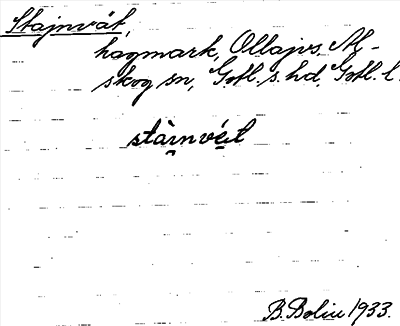 Stajnvát,
hagmark, Ollajvs. Al-
skog sn, Gotl. s. hd, Gotl. l.
stàinvét
B. Bolin 1933.